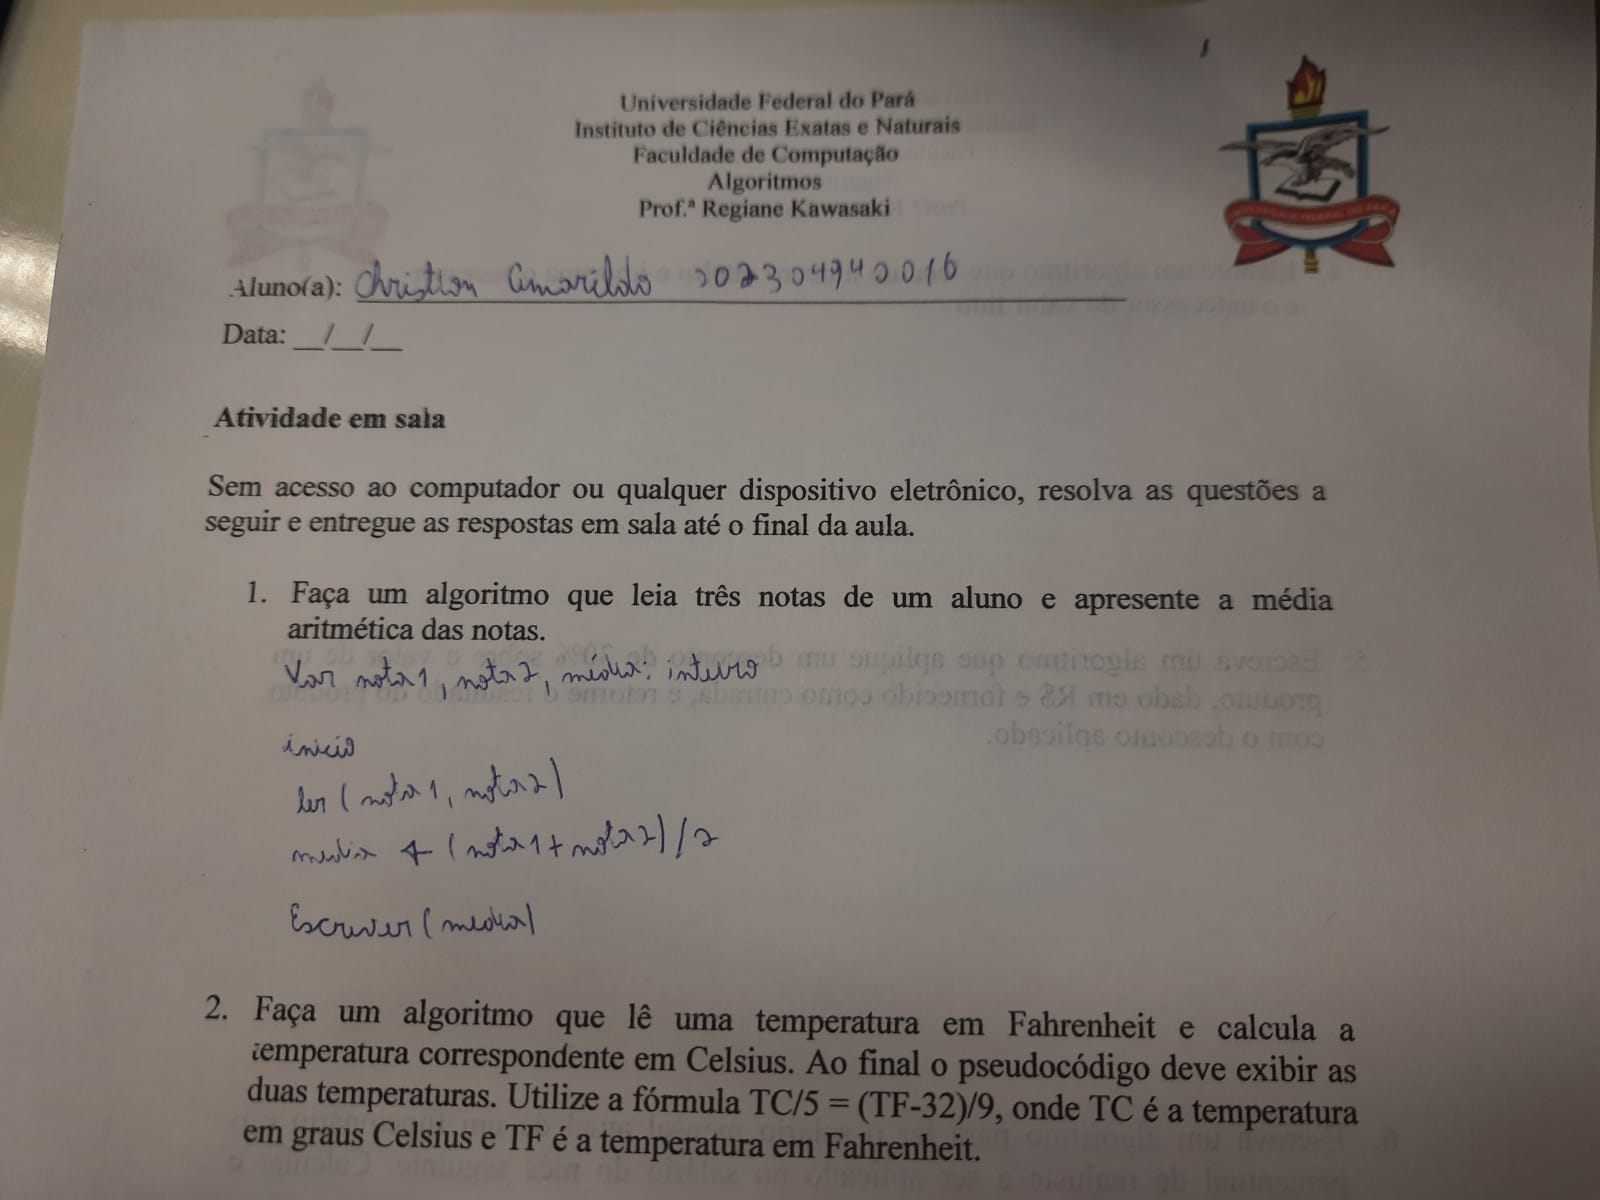 Universidade Federal do Pará
Instituto de Ciências Exatas e Naturais
Faculdade de Computação
Algoritmos
Prof.ª Regiane Kawasaki
Aluno(a): Christian Amarildo 202304940016
Data: __/__/__
Atividade em sala
Sem acesso ao computador ou qualquer dispositivo eletrônico, resolva as questões a
seguir e entregue as respostas em sala até o final da aula.
1. Faça um algoritmo que leia três notas de um aluno e apresente a média
aritmética das notas.
Var nota1, nota2, média: inteiro
inicio
ler (nota1, nota2)
media ← (nota1+nota2)/2
Escrever (media)
2. Faça um algoritmo que lê uma temperatura em Fahrenheit e calcula a
temperatura correspondente em Celsius. Ao final o pseudocódigo deve exibir as
duas temperaturas. Utilize a fórmula TC/5 = (TF-32)/9, onde TC é a temperatura
em graus Celsius e TF é a temperatura em Fahrenheit.